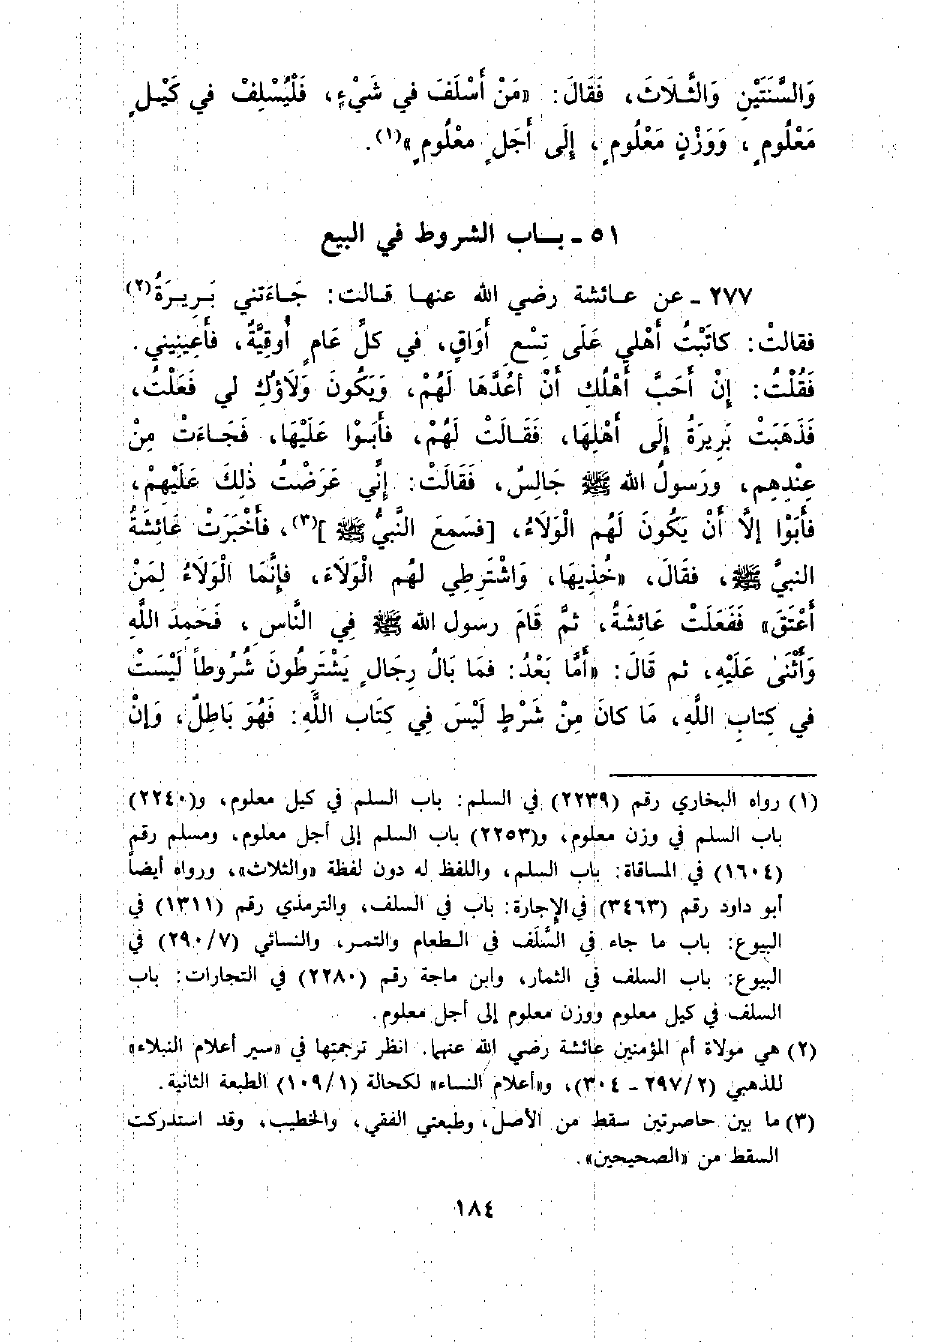 وَالسَّنَتَيْنِ وَالثَّـلَاثَ، فَقَالَ: «مَنْ أَسْلَفَ في شَيْءٍ، فَلْيُسْلِفْ في كَيْـلٍ
مَعْلُومٍ، وَوَزْنٍ مَعْلُومٍ، إِلَى أَجَلٍ معْلُومٍ»(١).
٥١ - بــاب الشروط في البيع
٢٧٧ - عن عـائشة رضي الله عنهـا قـالت: جَـاءَتني بَـرِيـرَةُ(٢)
فقالتْ: كاتَبْتُ أَهْلي عَلَى تِسْعِ أَوَاقٍ، في كلِّ عَامٍ أُوقِيَّةٌ، فأَعِينِيني.
فَقُلْتُ: إِنْ أَحَبَّ أَهْلُكِ أَنْ أعُدَّهَا لَهُمْ، وَيَكُونَ وَلَاؤكِ لي فَعَلْتُ،
فَذَهَبَتْ بَرِيرَةُ إلَى أَهْلِهَا، فَقَـالَتْ لَهُمْ، فأَبَـوْا عَلَيْهَا، فَجَـاءَتْ مِنْ
عِنْدِهِم، ورَسولُ الله ﷺ جَالِسٌ، فَقَالَتْ: إنِّي عَرَضْتُ ذلِكَ عَلَيْهِمْ،
فأَبَوْا إلاَّ أَنْ يَكُونَ لَهُم الْوَلَاءُ، [فسَمِعَ النَّبيُّ ﷺ](٣)، فأَخْبَرَتْ عَائِشَةُ
النبيَّ ﷺ، فقالَ، «خُذِيهَا، وَاشْتَرِطِي لهُم الْوَلَاءَ، فإنَّمَا الْوَلَاءُ لِمَنْ
أَعْتَقَ» فَفَعَلَتْ عَائِشَةُ، ثمَّ قَامَ رسول الله ﷺ فِي النَّاسِ، فَحَمِدَ اللَّهِ
وَأَثْنَىٰ عَلَيْهِ، ثم قَالَ: «أَمَّا بَعْدُ: فمَا بَالُ رِجَالٍ يَشْتَرِطُونَ شُرُوطاً لَيْسَتْ
في كِتابِ اللَّهِ، مَا كانَ مِنْ شَرْطٍ لَيْسَ فِي كِتَابِ اللَّهِ: فَهُوَ بَاطِلٌ، وَإنْ
(١) رواه البخاري رقم (٢٢٣٩) في السلم: باب السلم في كيل معلوم، و(٢٢٤٠)
باب السلم في وزن معلوم، و(٢٢٥٣) باب السلم إلى أجل معلوم، ومسلم رقم
(١٦٠٤) في المساقاة: باب السلم، واللفظ له دون لفظة «والثلاث»، ورواه أيضاً
أبو داود رقم (٣٤٦٣) في الإجارة: باب في السلف، والترمذي رقم (١٣١١) في
البيوع: باب ما جاء في السَّلَف في الـطعام والتمـر، والنسائي (٧/ ٢٩٠) في
البيوع: باب السلف في الثمار، وابن ماجة رقم (٢٢٨٠) في التجارات: باب
السلف في كيل معلوم ووزن معلوم إلى أجل معلوم.
(٢) هي مولاة أم المؤمنين عائشة رضي الله عنهما. انظر ترجمتها في «سير أعلام النبلاء»
للذهبي (٢/ ٢٩٧ - ٣٠٤)، و«أعلام النساء» لكحالة (١/ ١٠٩) الطبعة الثانية.
(٣) ما بين حاصرتين سقط من الأصل، وطبعتي الفقي، والخطيب، وقد استدركت
السقط من «الصحيحين».
١٨٤